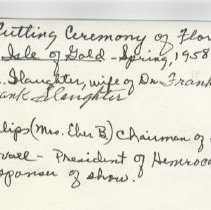 Cutting Ceremony of Flo
Isle of Gold - Spring, 1958
. Slaughter, wife of Dr. Frank
ank Slaughter
lips (Mrs. Eber B) Chairman of
- President of Hemroca
sponsor of show.